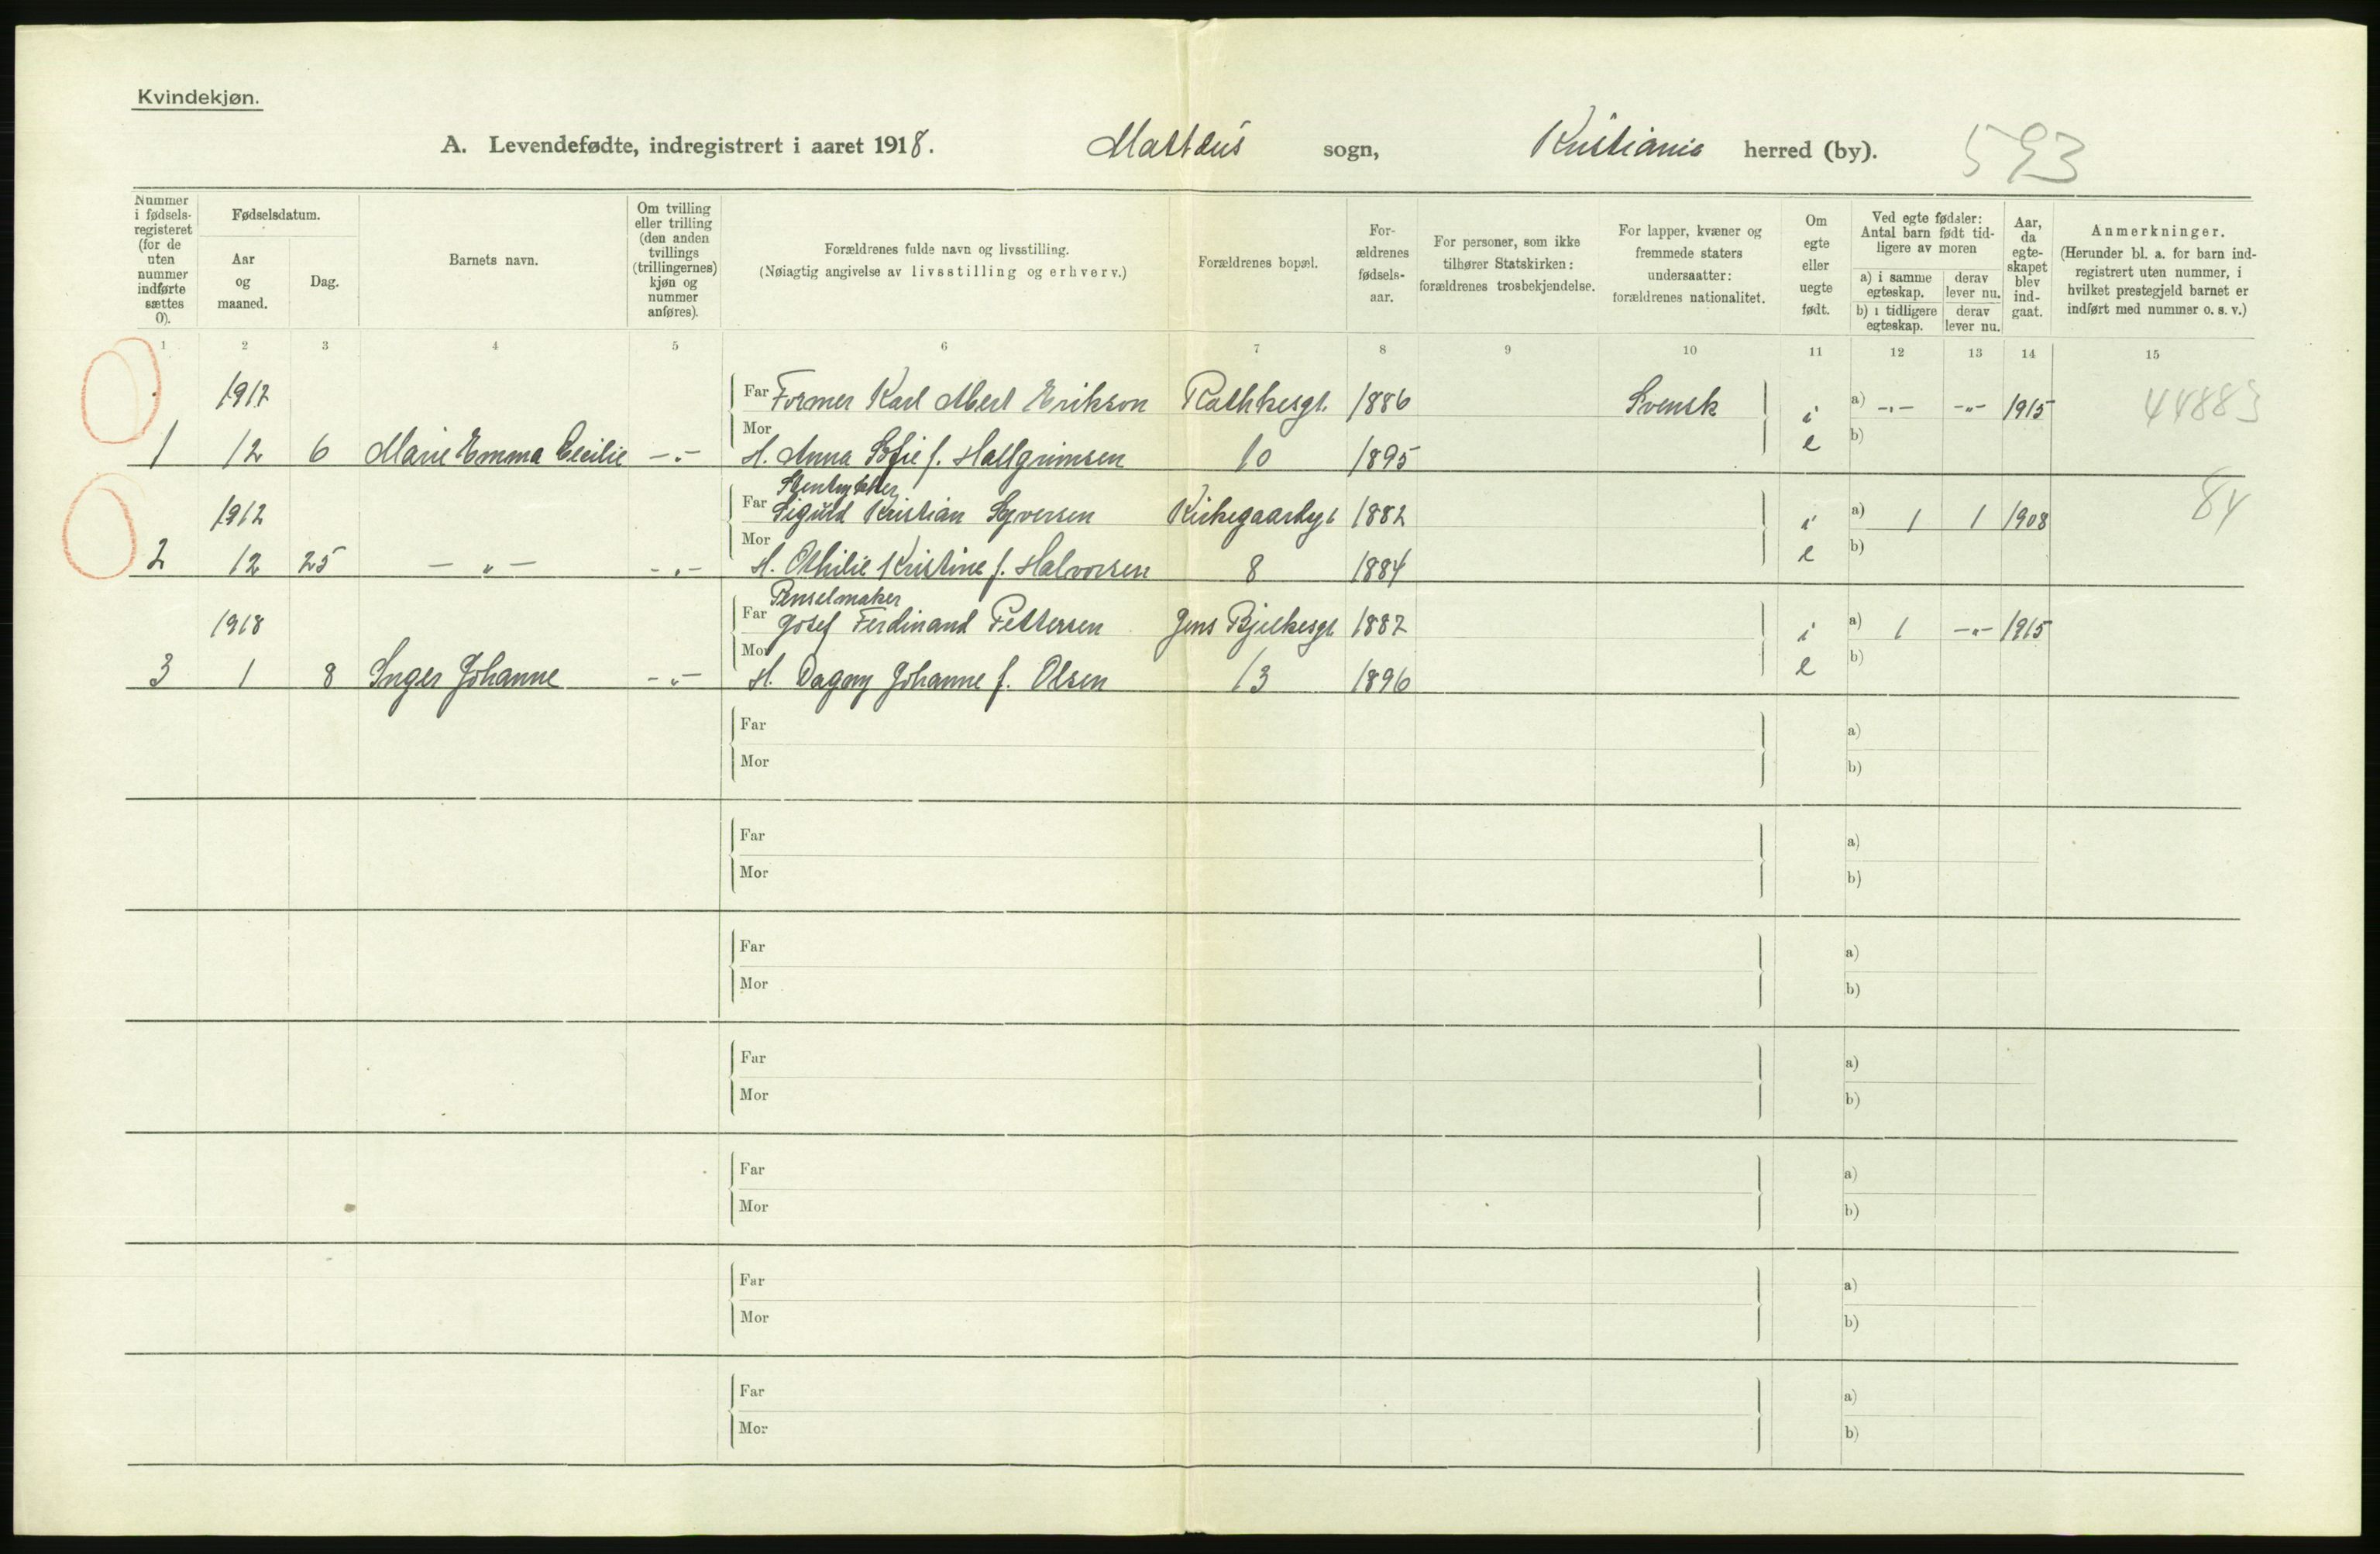 Kvindekjøn.
A. Levendefødte, indregistrert i aaret 1918. Mattæus sogn, Kristiania herred (by). 593
Nummer i fødselsregisteret (for de uten nummer indførte sættes 0).
Fødselsdatum.
Aar og maaned.
Dag.
Barnets navn.
Om tvilling eller trilling (den anden tvillings (trillingernes) kjøn og nummer anføres).
Forældrenes fulde navn og livsstilling.
(Nøiagtig angivelse av livsstilling og erhverv.)
Forældrenes bopæl.
Forældrenes fødselsaar.
For personer, som ikke tilhører Statskirken: forældrenes trosbekjendelse.
For lapper, kvæner og fremmede staters undersaatter: forældrenes nationalitet.
Om egte eller uegte født.
Ved egte fødsler: Antal barn født tidligere av moren
a) i samme egteskap. derav lever nu.
b) i tidligere egteskap. derav lever nu.
Aar, da egteskapet blev indgaat.
Anmerkninger.
(Herunder bl. a. for barn indregistrert uten nummer, i hvilket prestegjeld barnet er indført med nummer o. s. v.)
1 2 3 4 5 6 7 8 9 10 11 12 13 14 15
1917 Far Former Karl Albert Erikson Rathkesgt. 1886 Svensk i a) -"- -"- 1915 44883
1 12 6 Marie Emma Cecilie -"- Mor H. Anna Sofie f. Hallgrimsen 10 1895 e b)
Stentrykker
1917 Far Sigurd Kristian Syversen Kirkegaardsgt 1882 i a) 1 1 1908 84
2 12 25 -"- -"- Mor H. Othilie Kristine f. Halvorsen 8 1884 e b)
Penselmaker
1918 Far Josef Ferdinand Pettersen Jens Bjelkesgt 1887 i a) 1 -"- 1915
3 1 8 Inger Johanne -"- Mor H. Dagny Johanne f. Olsen 13 1896 e b)
Far a)
Mor b)
Far a)
Mor b)
Far a)
Mor b)
Far a)
Mor b)
Far a)
Mor b)
Far a)
Mor b)
Far a)
Mor b)